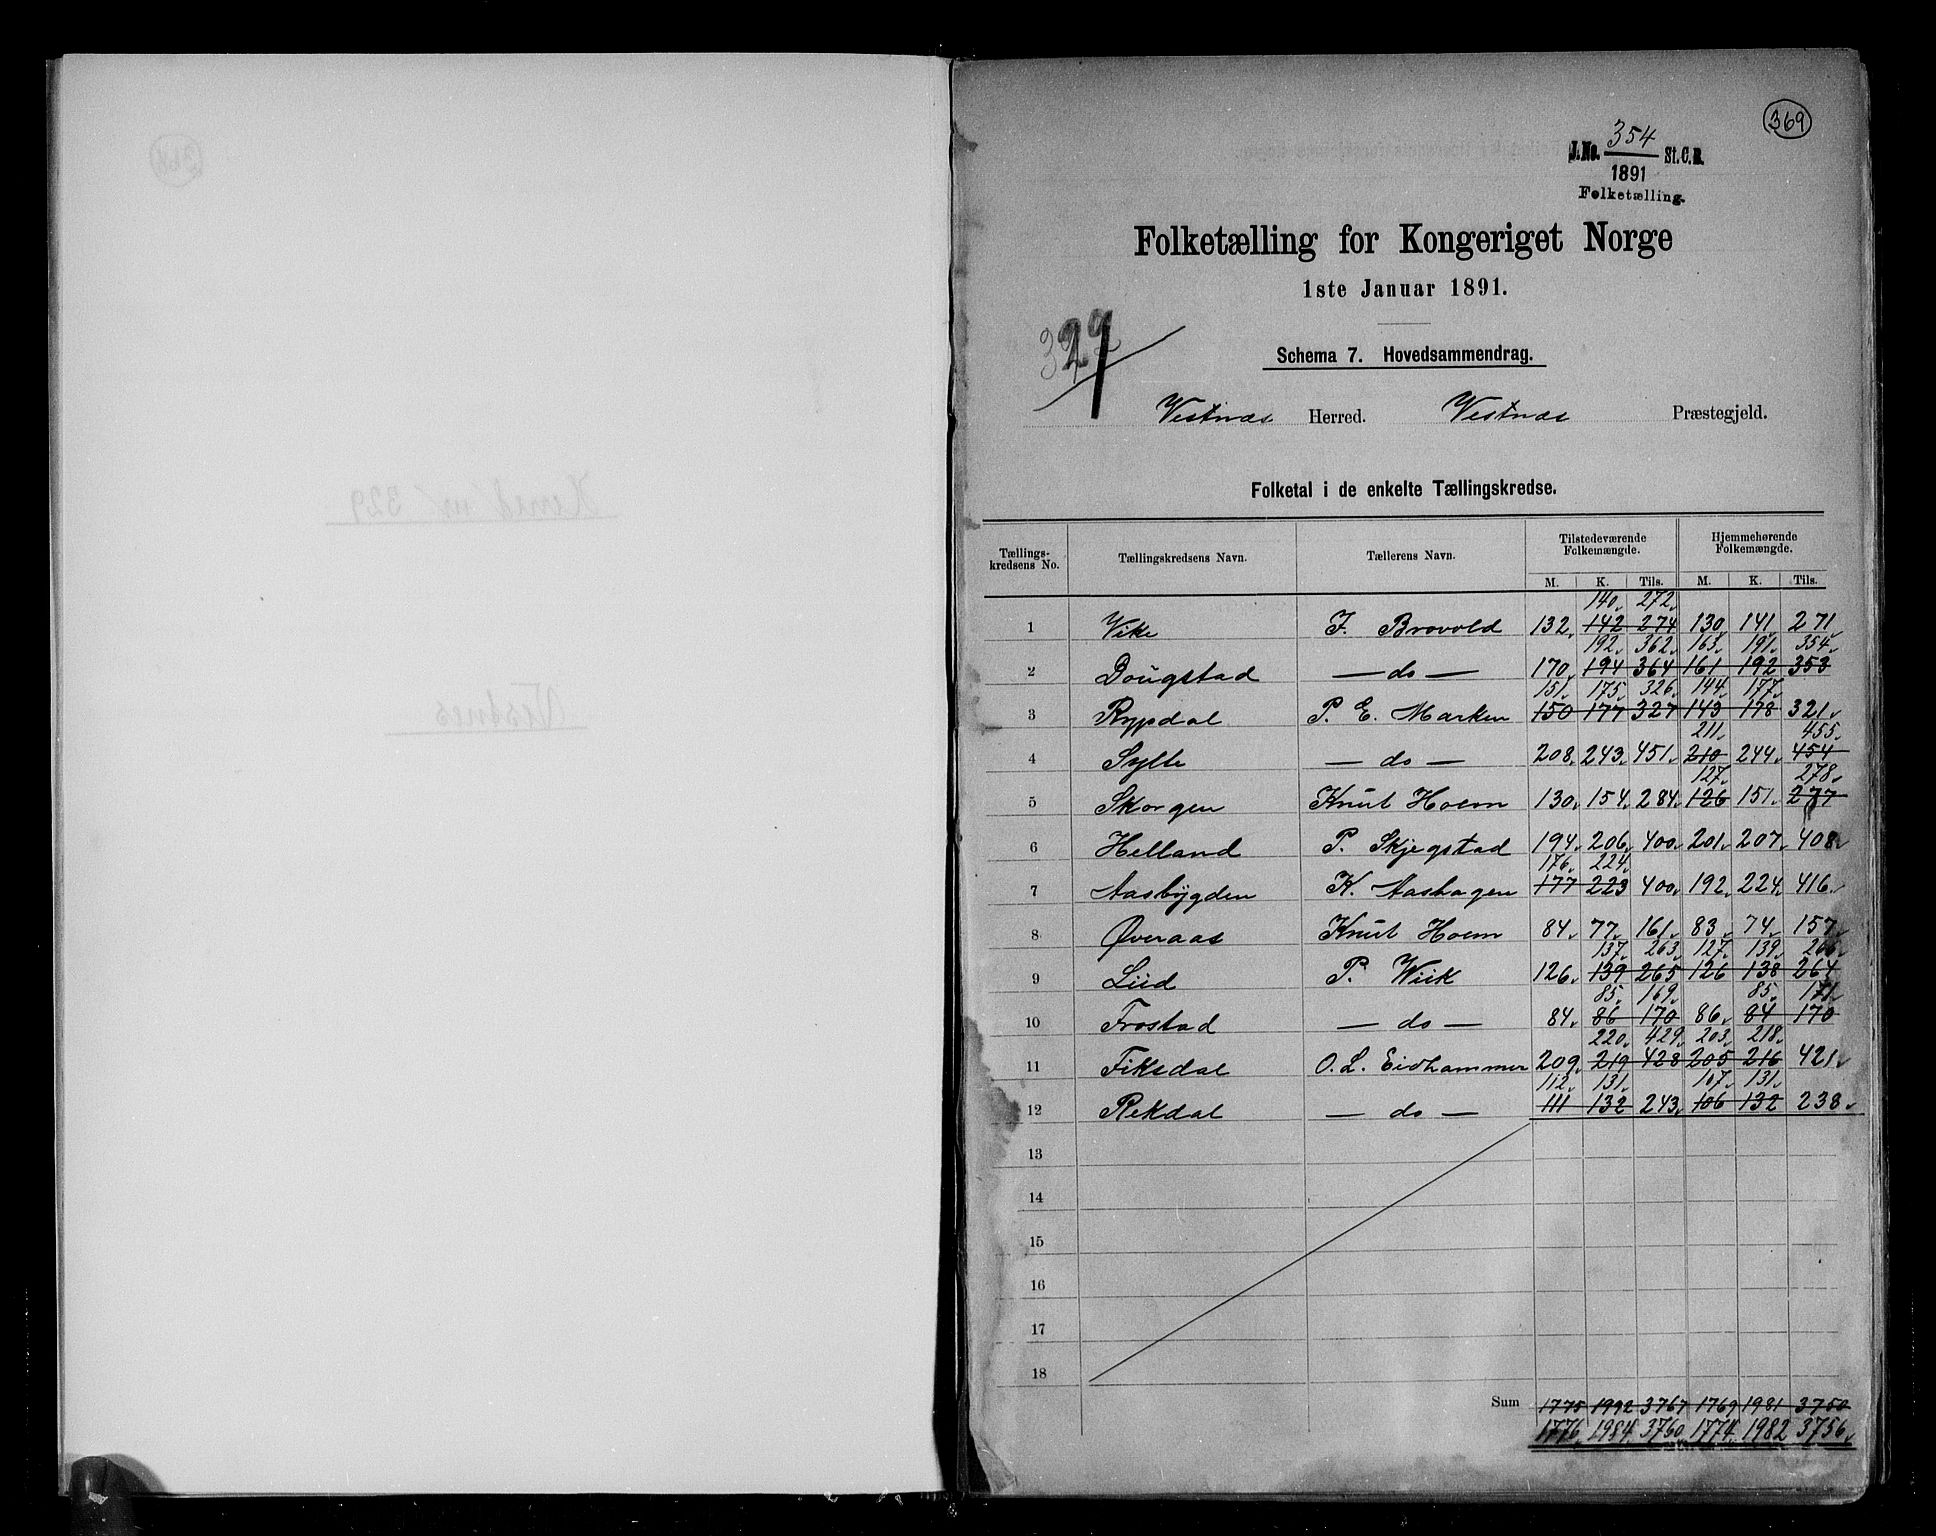 369
J.No. 354 St.C.B.
1891
Folketælling.
Folketælling for Kongeriget Norge
1ste Januar 1891.
329
Schema 7. Hovedsammendrag.
Vestnæs Herred. Vestnæs Præstegjeld.
Folketal i de enkelte Tællingskredse.
Tællings- kredsens No. Tællingskredsens Navn. Tællerens Navn. Tilstedeværende Folkemængde. Hjemmehørende Folkemængde.
M. K. Tils. M. K. Tils.
140 272
1 Vike F. Brovold 132 142 274 130 141 271
192 362 163 191 354
2 Dougstad — do — 170 194 364 161 192 353
151 175 326 144 177
3 Rypdal P. E. Marken 150 177 327 143 178 321
211 455
4 Sylte — do — 208 243 451 210 244 454
127 278
5 Skorgen Knut Hoem 130 154 284 126 151 277
6 Helland P. Skjegstad 194 206 400 201 207 408
176 224
7 Aasbygden K. Aashagen 177 223 400 192 224 416
8 Øveraas Knut Hoem 84 77 161 83 74 157
137 263 127 139 266
9 Liid P. Wiik 126 139 265 126 138 264
85 169 85 171
10 Frostad — do — 84 86 170 86 84 170
220 429 203 218
11 Fiksdal O. L. Eidhammer 209 219 428 205 216 421
112 131 107 131
12 Rekdal — do — 111 132 243 106 132 238
13
14
15
16
17
18
Sum 1775 1992 3767 1769 1981 3750
1776 1984 3760 1774 1982 3756